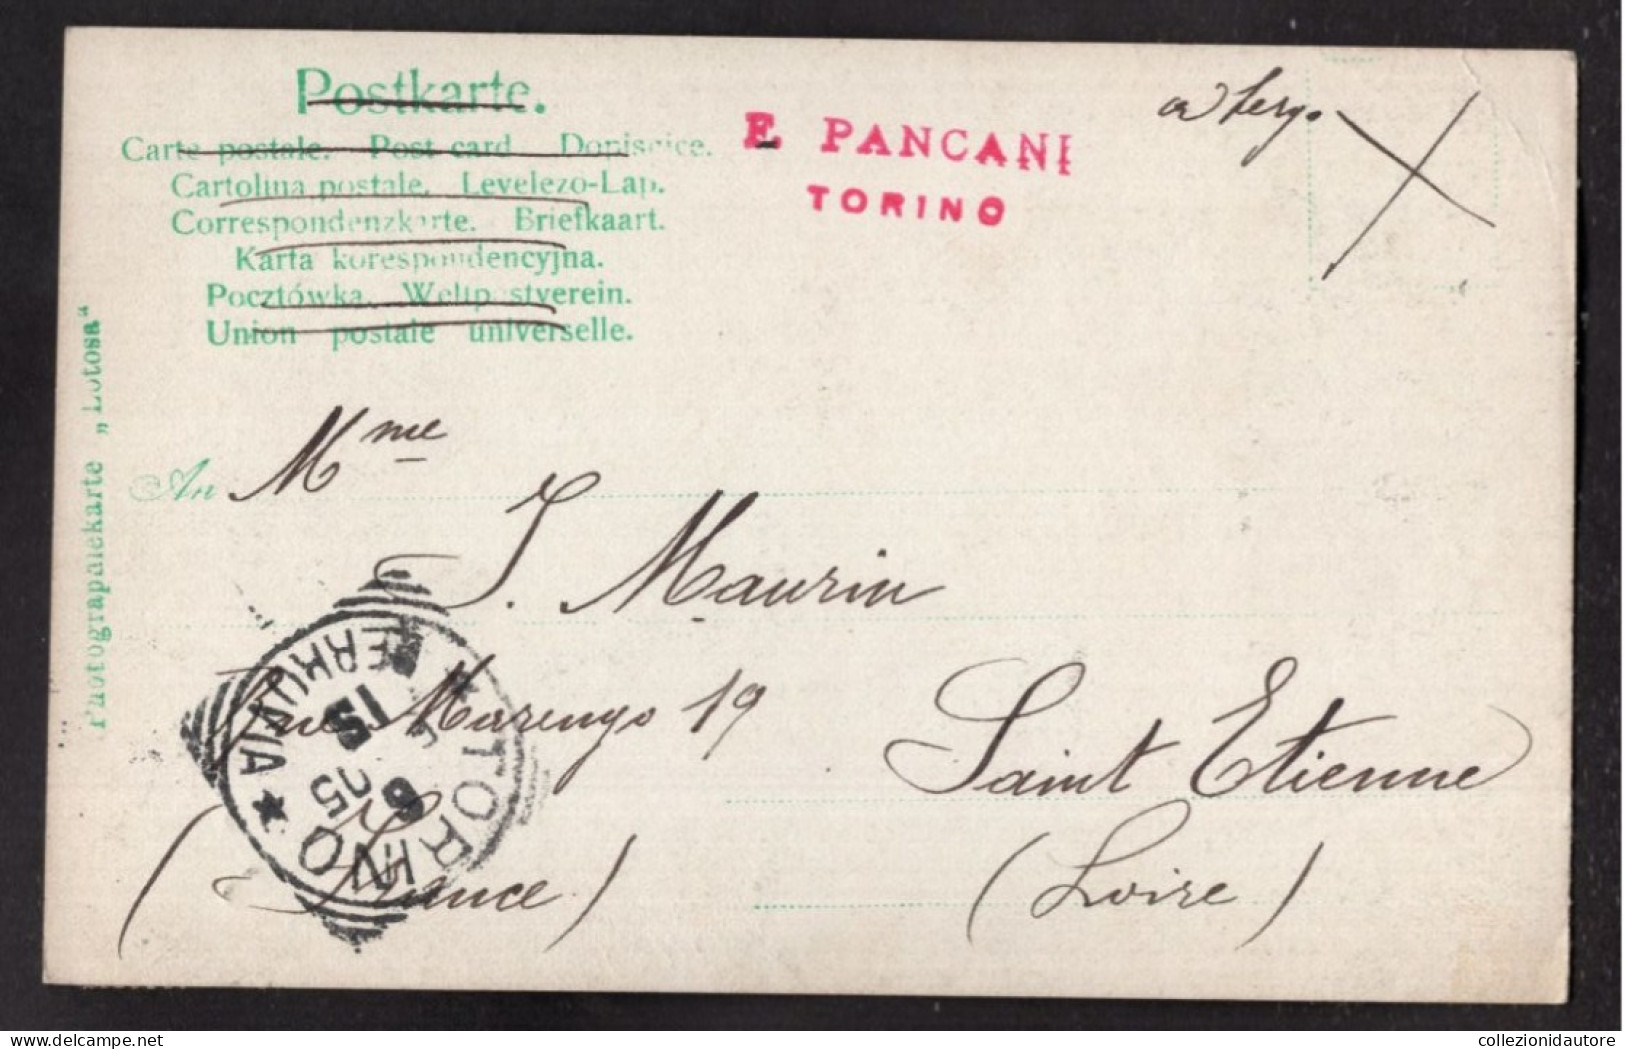 Postkarte.
Carte postale. Post card Dopisnice.
Cartolina postale. Levelezo-Lap.
Correspondenzkarte. Briefkaart.
Karta korespondencyjna.
Pocztówka. Weltpostverein.
Union postale universelle.
E. PANCANI
TORINO
a tergo
Photographiekarte „Lotosa“
An Mme
J. Maurin
Rue Marengo 19
Saint Etienne
(France)
(Loire)
TORINO
FERROVIA
6
05
collezionidautore
https://www.delcampe.net